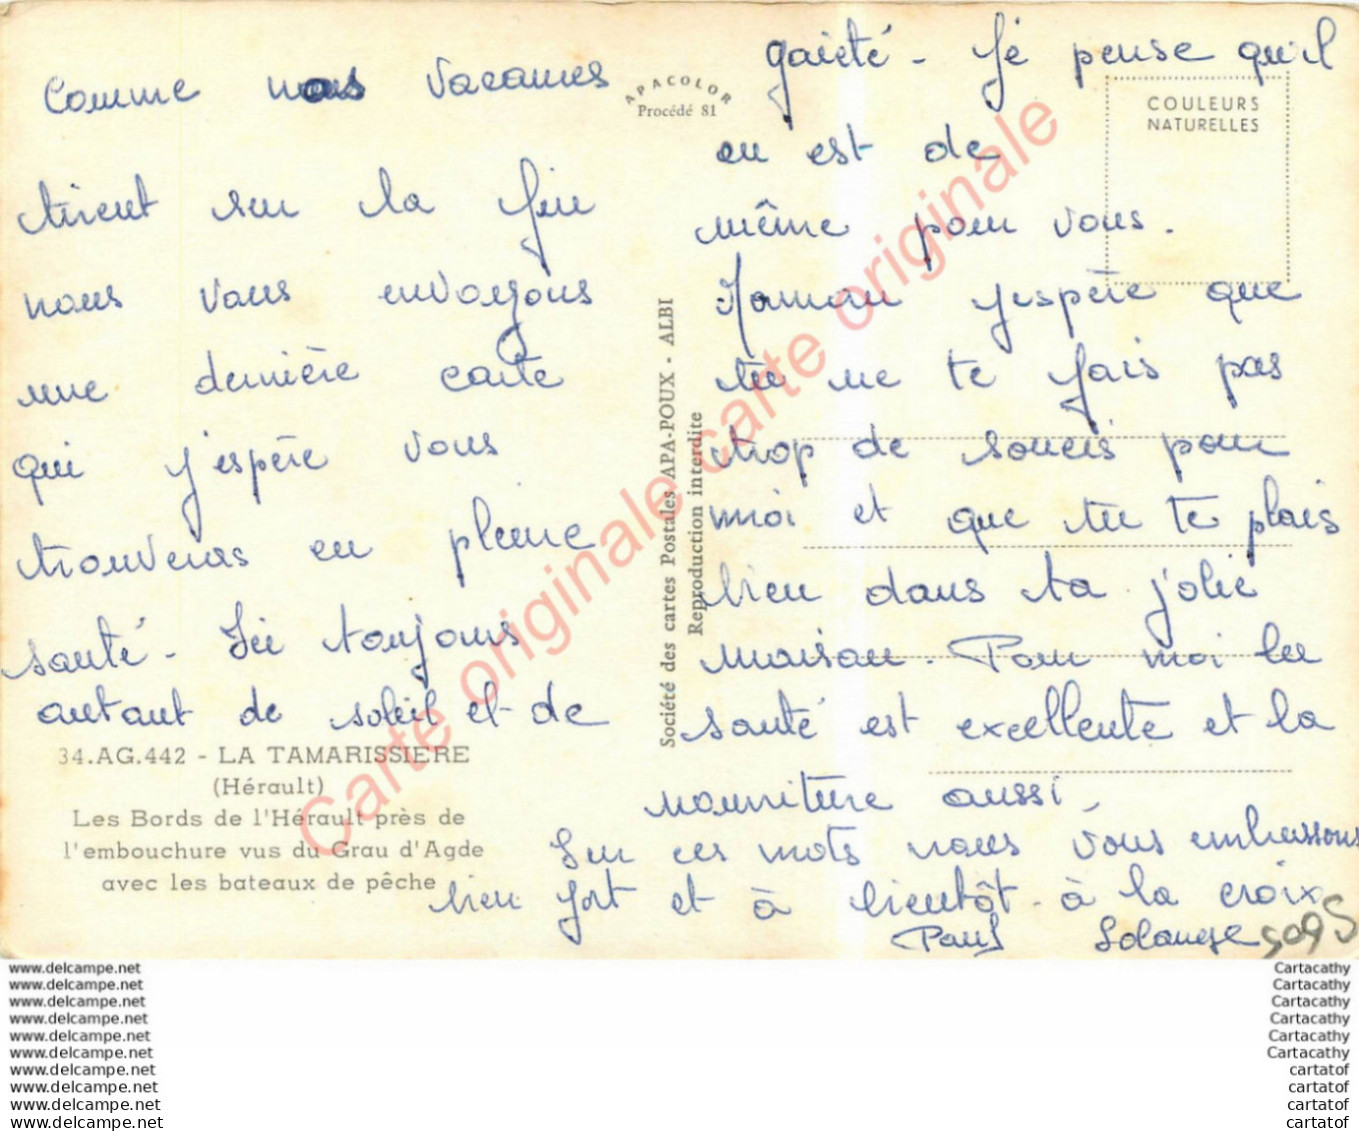 Comme nous vacances
tirent sur la fin
nous vous envoyons
une dernière carte
qui j'espère vous
trouveras en pleine
santé - Ici toujours
autant de soleil et de
34.AG.442 - LA TAMARISSIERE
(Hérault)
Les Bords de l'Hérault près de
l'embouchure vus du Grau d'Agde
avec les bateaux de pêche
APACOLOR
Procédé 81
Société des cartes Postales APA-POUX - ALBI
Reproduction interdite
COULEURS
NATURELLES
gaieté - Je pense qu'il
en est de
même pour vous.
Maman j'espère que
tu ne te fais pas
trop de soucis pour
moi et que tu te plais
bien dans ta jolie
maison. Pour moi la
santé est excellente et la
nourriture aussi -
Sur ces mots nous vous embrassons
bien fort et à bientôt - à la croix
Paul Solange
5095
Carte originale carte originale
www.delcampe.net
www.delcampe.net
www.delcampe.net
www.delcampe.net
www.delcampe.net
www.delcampe.net
www.delcampe.net
www.delcampe.net
www.delcampe.net
www.delcampe.net
Cartacathy
Cartacathy
Cartacathy
Cartacathy
Cartacathy
Cartacathy
cartatof
cartatof
cartatof
cartatof